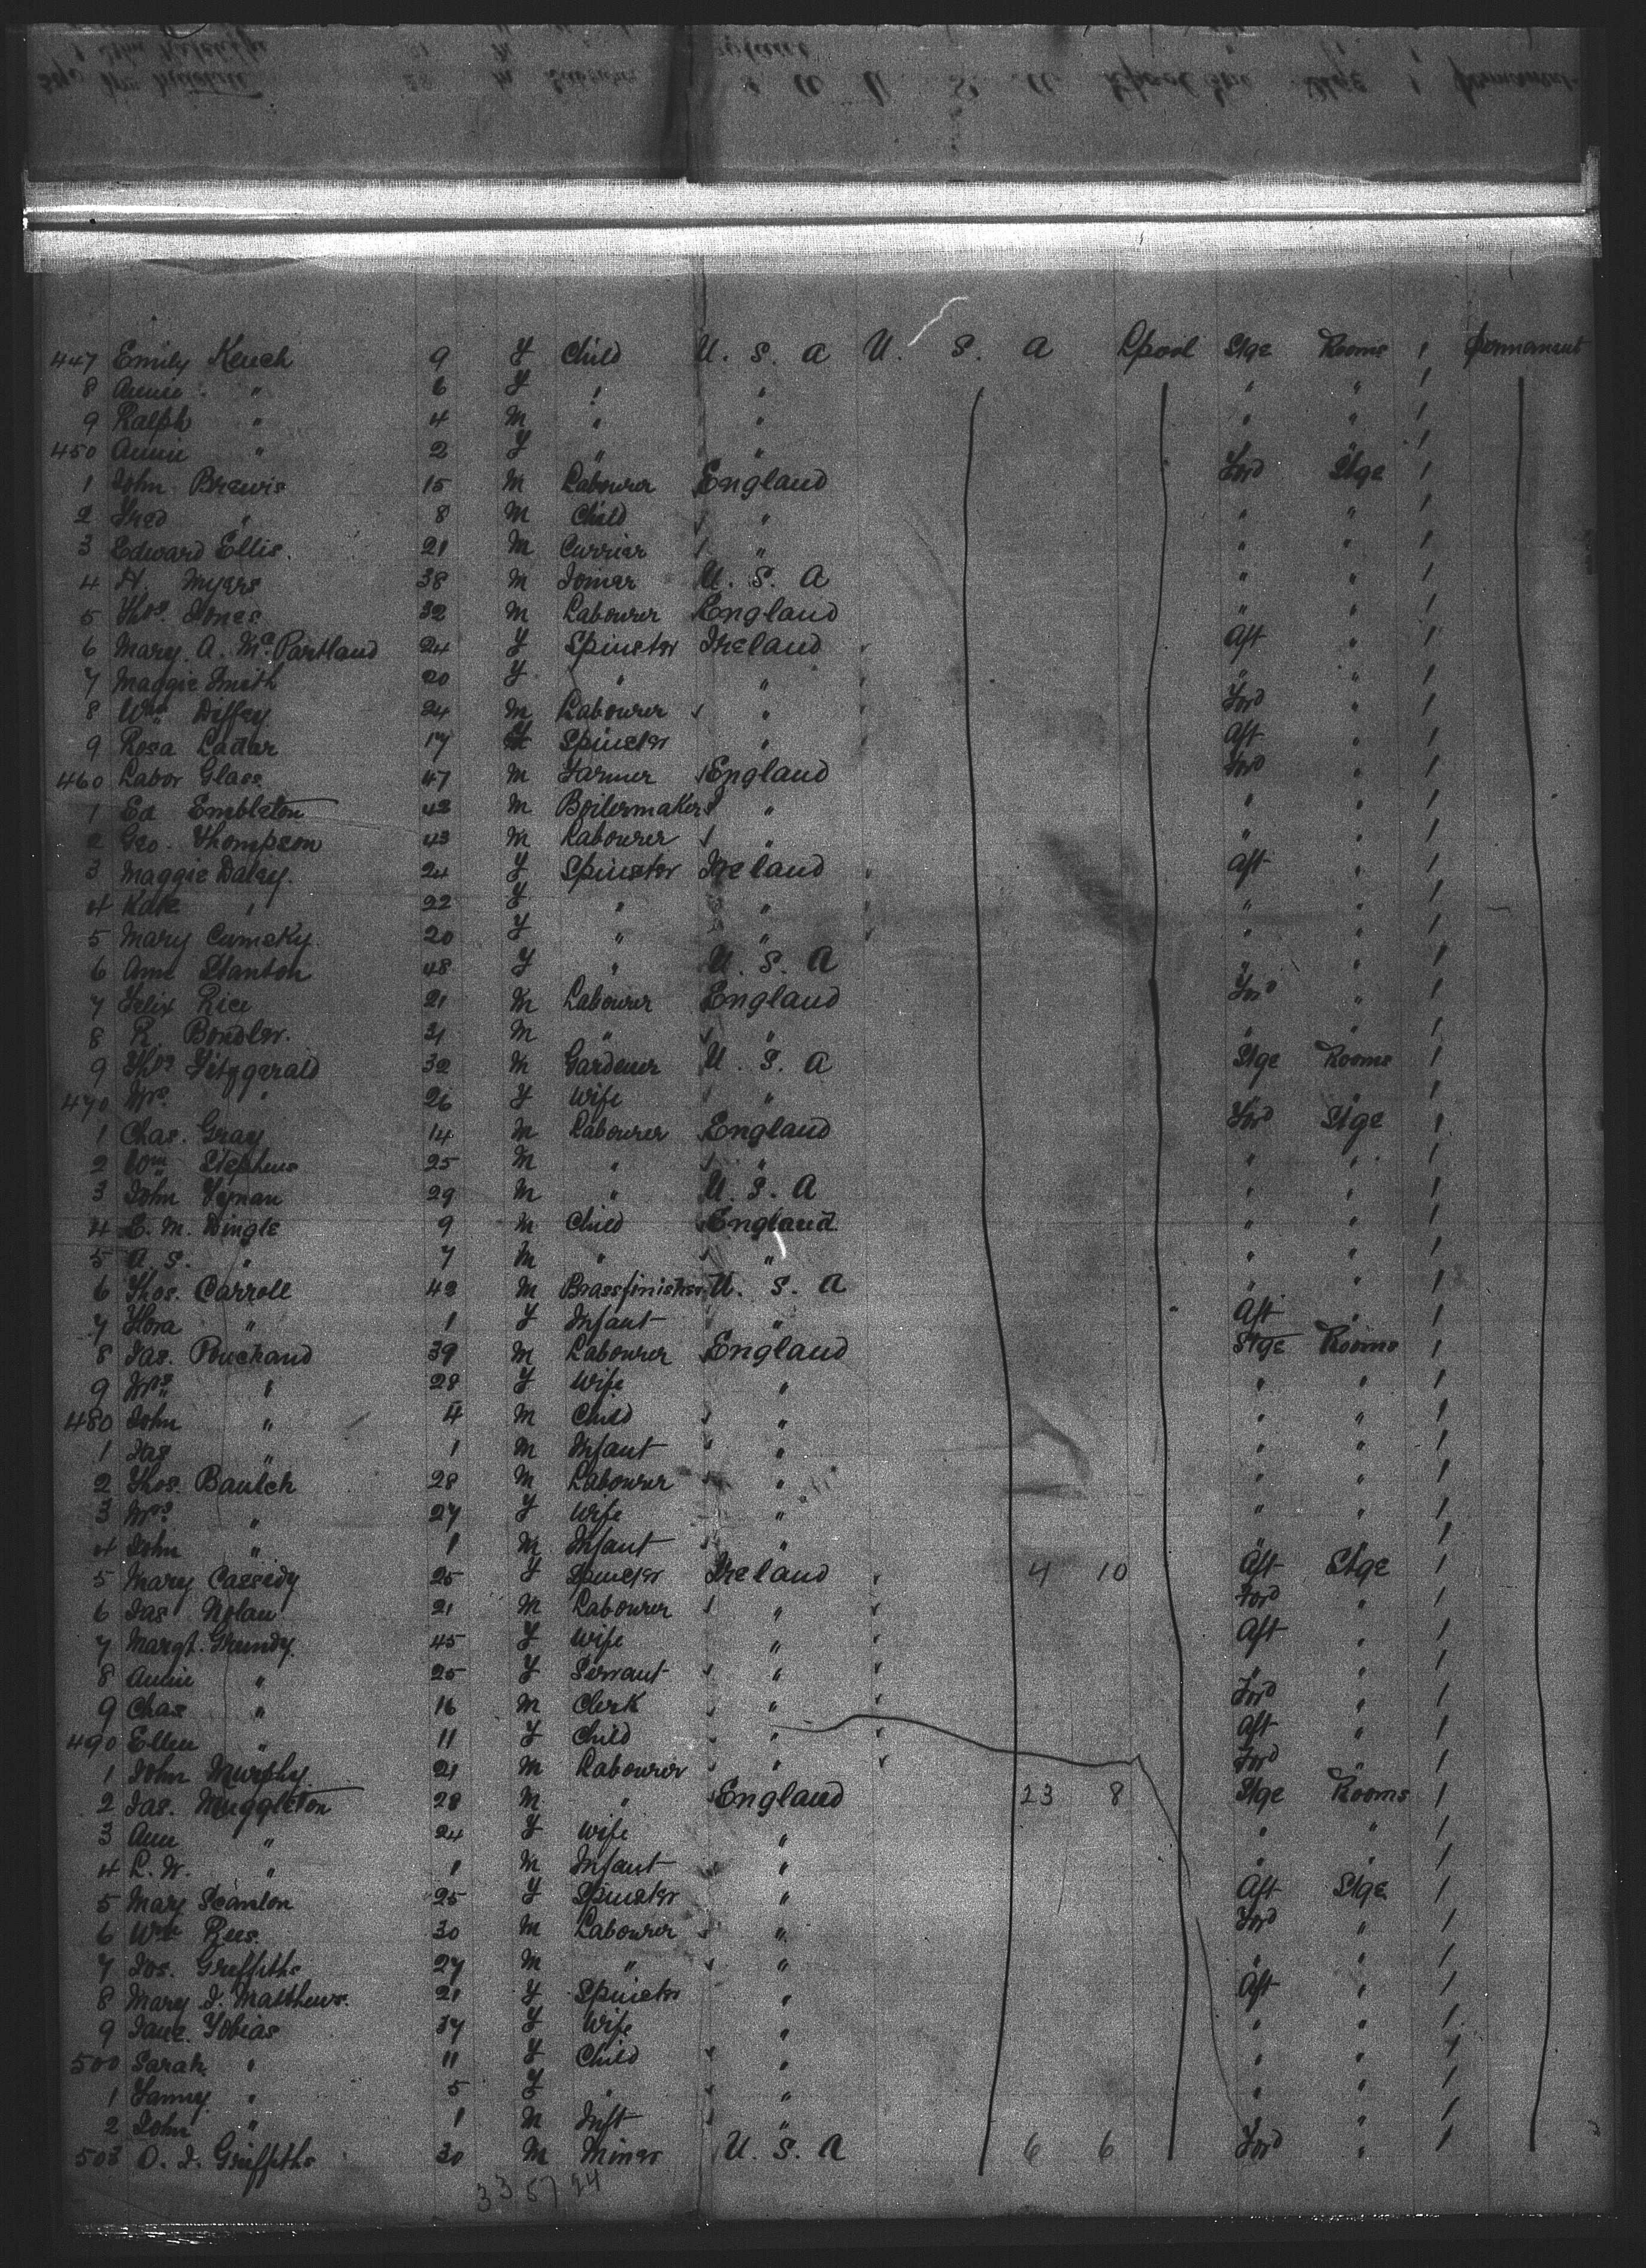 447 Emily Keuch 9 F Child U. S. A U. S. A Lpool Stge Rooms 1 permanent
8 Annie " 6 F " " " " 1
9 Ralph " 4 M " " " " 1
450 Annie " 2 F " " " " 1
1 John Brewis 15 M Labourer England Ford Stge 1
2 Fred " 8 M Child " " " 1
3 Edward Ellis. 21 M Currier " " " 1
4 H. Myers 38 M Joiner U. S. A " " 1
5 Thos. Jones 32 M Labourer England " " 1
6 Mary. A. McPartland 24 F Spinster Ireland Aft " 1
7 Maggie Smith 20 F " " " " 1
8 Wm Diffey 24 M Labourer " Ford " 1
9 Rosa Ladar 17 F Spinster " Aft " 1
460 Labor Glass 47 M Farmer England Ford " 1
1 Ed Embleton 42 M Boilermaker " " " 1
2 Geo. Thompson 43 M Labourer " " " 1
3 Maggie Daley. 24 F Spinster Ireland Aft " 1
4 Kate " 22 F " " " " 1
5 Mary Cumsky. 20 F " " " " 1
6 Ann Stanton 48 F " U. S. A " " 1
7 Felix Rice 21 M Labourer England Ford " 1
8 R. Bondler. 31 M " " " " 1
9 Thos Fitzgerald 32 M Gardener U. S. A Stge Rooms 1
470 Mrs. " 26 F Wife " 1
1 Chas. Gray 14 M Labourer England Ford Stge 1
2 Wm Stephens 25 M " " " " 1
3 John Tynan 29 M " U. S. A " " 1
4 E. M. Dingle 9 M Child England " " 1
5 A. S. " 7 M " " " " 1
6 Thos. Carroll 42 M Brassfinisher U. S. A " " 1
7 Flora " 1 F Infant " Aft " 1
8 Jas. 39 M Labourer England Stge Rooms 1
9 Mrs " 28 F Wife " " " 1
480 John " 4 M Child " " " 1
1 Jas " 1 M Infant " " " 1
2 Thos. Baulch 28 M Labourer " " " 1
3 Mrs. " 27 F Wife " " " 1
4 John " 1 M Infant " " " 1
5 Mary Cassidy 25 F Spinster Ireland 4 10 Aft Stge 1
6 Jas Nolan 21 M Labourer " Ford " 1
7 Margt. Grundy. 45 F Wife " Aft " 1
8 Annie " 25 F Servant " " " 1
9 Chas " 16 M Clerk " Ford " 1
490 Ellen " 11 F Child " Aft " 1
1 John Murphy. 21 M Labourer " Ford " 1
2 Jas. Muggleton 28 M " England 23 8 Stge Rooms 1
3 Ann " 24 F Wife " " " 1
4 L. W. " 1 M Infant " " " 1
5 Mary Scanlon 25 F Spinster " Aft Stge 1
6 Wm Rees. 30 M Labourer " Ford " 1
7 Jos. Griffiths 27 M " " " " 1
8 Mary J. Matthews. 21 F Spinster " Aft " 1
9 Jane. Tobias 37 F Wife " " " 1
500 Sarah " 11 F Child " " " 1
1 Fanny. " 5 F " " " " 1
2 John " 1 M Inft " " 1
503 O. J. Griffiths 30 M Miner U. S. A 6 6 Ford " 1
33 57 24